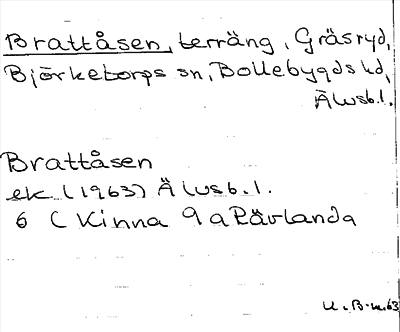 Brattåsen, terräng, Gräsryd,
Björketorps sn, Bollebygds hd,
Älvsb.l.
Brattåsen
ek. (1963) Älvsb.l.
6 C Kinna 9 a Rävlanda
U.B-n.63